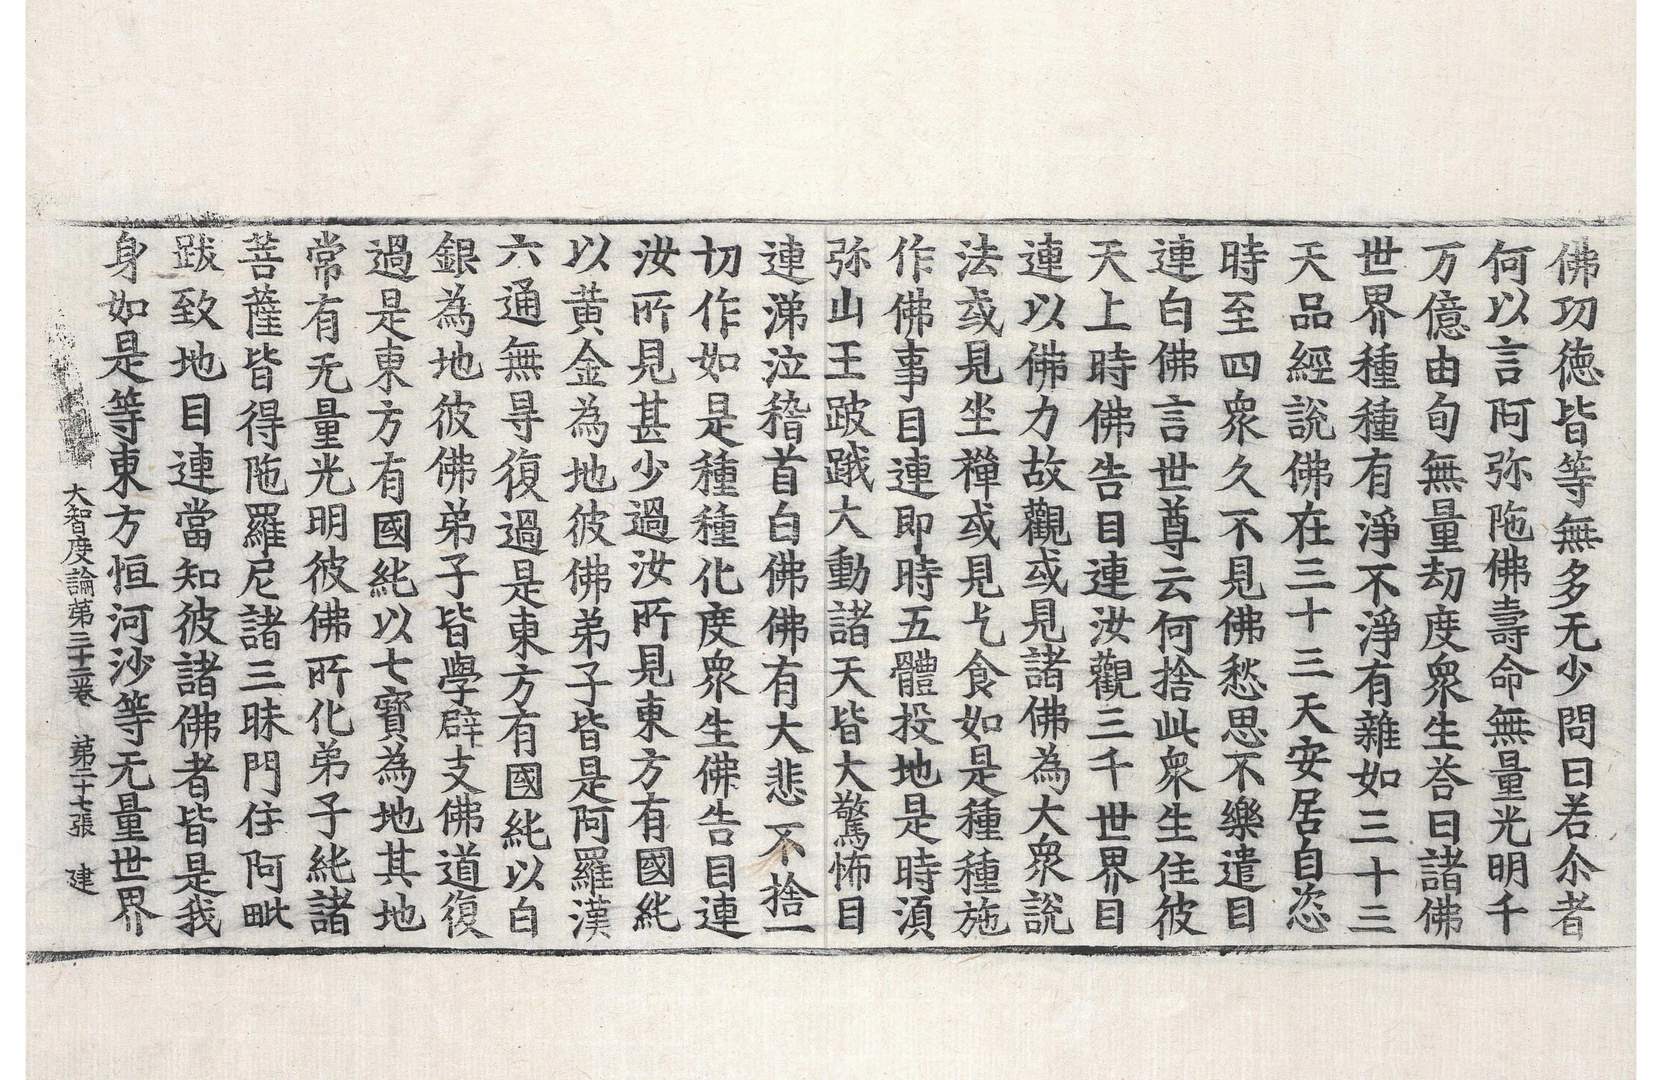 佛功徳皆等無多无少問曰若尒者
何以言阿弥陁佛壽命無量光明千
万億由旬無量刧度衆生荅曰諸佛
世界種種有淨不淨有雜如三十三
天品經說佛在三十三天安居自恣
時至四衆久不見佛愁思不樂遣目
連白佛言世尊云何捨此衆生住彼
天上時佛告目連汝觀三千世界目
連以佛力故觀或見諸佛為大衆說
法或見坐禪或見乞食如是種種施
作佛事目連即時五體投地是時湏
弥山王跛䟰大動諸天皆大驚怖目
連涕泣稽首白佛佛有大悲不捨一
切作如是種種化度衆生佛告目連
汝所見甚少過汝所見東方有國純
以黄金為地彼佛弟子皆是阿羅漢
六通無㝵復過是東方有國純以白
銀為地彼佛弟子皆學辟支佛道復
過是東方有國純以七寳為地其地
常有无量光明彼佛所化弟子純諸
菩薩皆得陁羅尼諸三昧門住阿毗
跋致地目連當知彼諸佛者皆是我
身如是等東方恒河沙等无量世界
大智度論第三十二卷 第二十七張 建